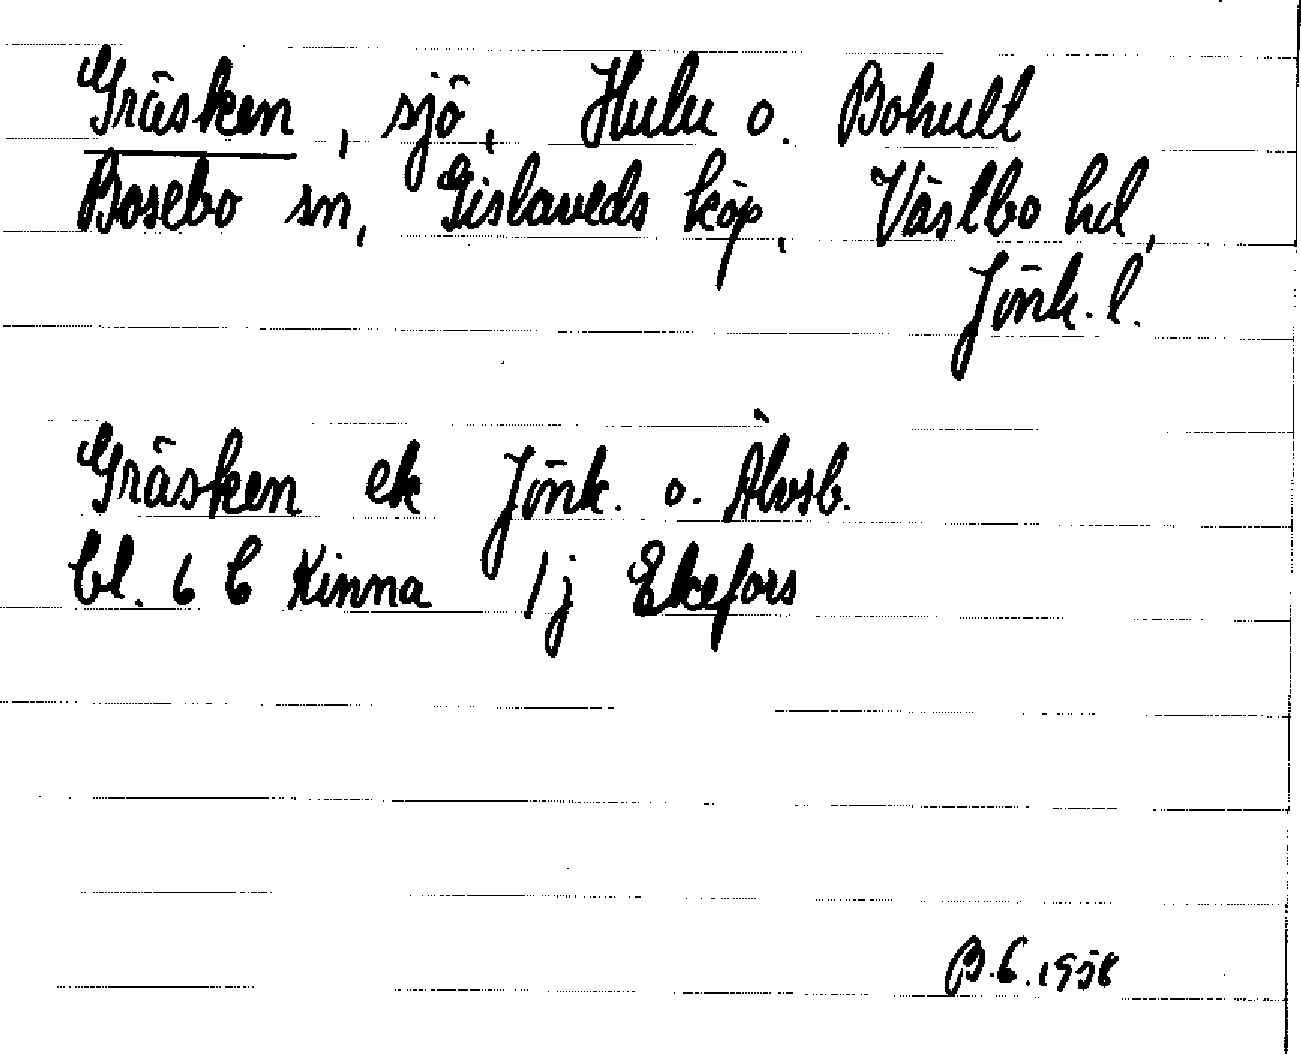 Gräsken, sjö, Hulu o. Bohult
Bosebo sn, Gislaveds köp, Västbo hd,
Jönk. l.
Gräsken ek Jönk. o. Älvsb.
bl. 6 C Kinna 1j Ekefors
B.C. 1958